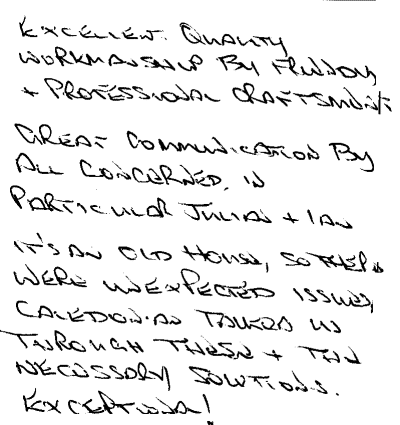 EXCELLENT. QUALITY
WORKMANSHIP BY FRIENDLY
+ PROFESSIONAL CRAFTSMEN
GREAT COMMUNICATION BY
ALL CONCERNED, IN
PARTICULAR JULIAN + IAN
IT'S AN OLD HOUSE, SO THERE
WERE UNEXPECTED ISSUES,
CALEDONIAN TALKED US
THROUGH THESE + THE
NECESSARY SOLUTIONS.
EXCEPTIONAL!